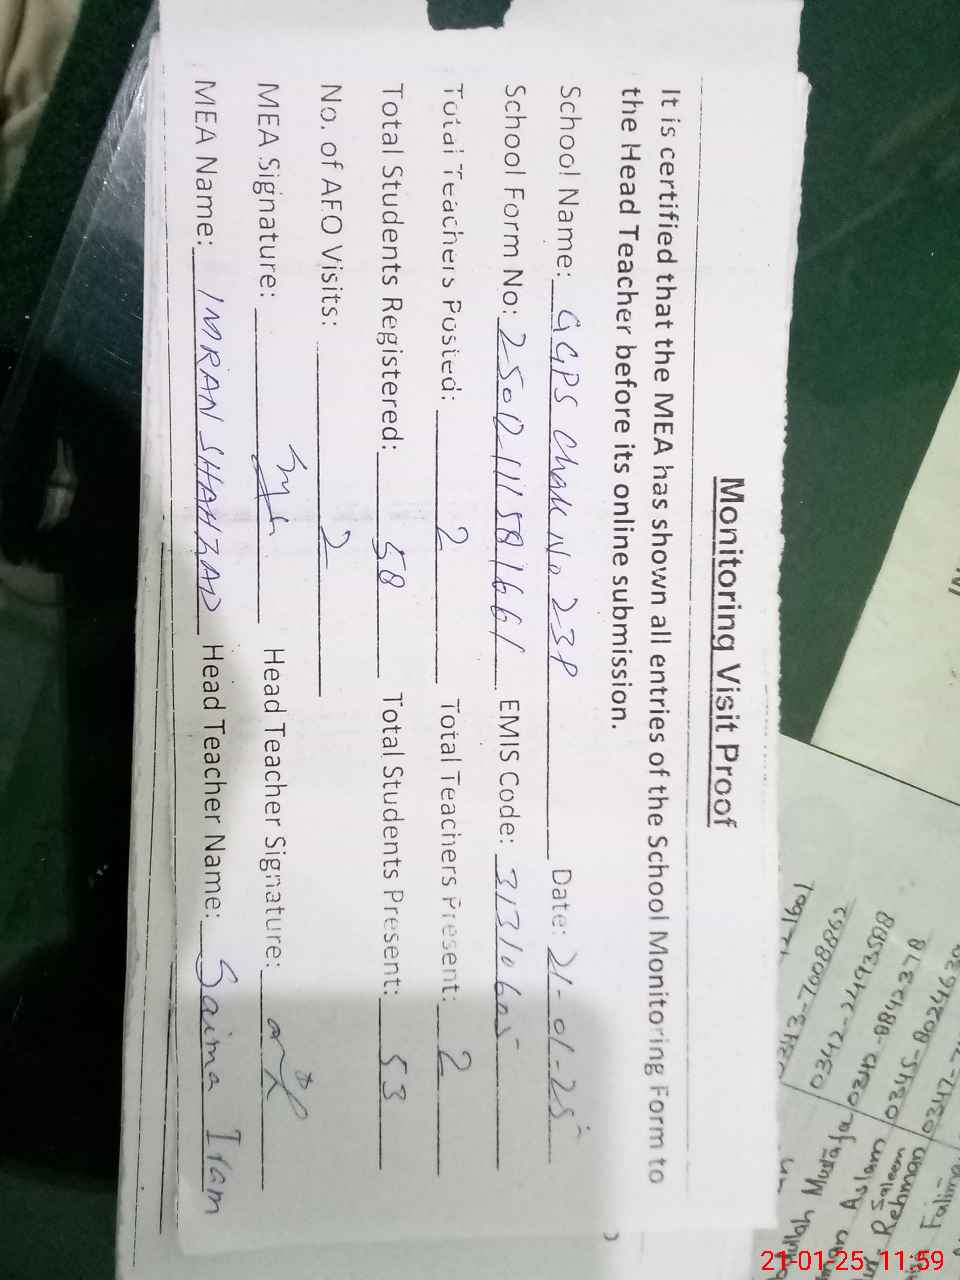 Monitoring Visit Proof
It is certified that the MEA has shown all entries of the School Monitoring Form to
the Head Teacher before its online submission.
School Name: GGPS Chak No 23P Date: 21-01-25
School Form No: 25012111581661 EMIS Code: 31310605
Total Teachers Posted: 2 Total Teachers Present: 2
Total Students Registered: 58 Total Students Present: 53
No. of AEO Visits: 2
MEA Signature: Head Teacher Signature:
MEA Name: IMRAN SHAHZAD Head Teacher Name: Saima Iram
0343-7008862
0342-2493588
Mustafa 0342-8842378
Aslam 0345-8024639
Saleem
Rehman 0347-
21-01-25 11:59